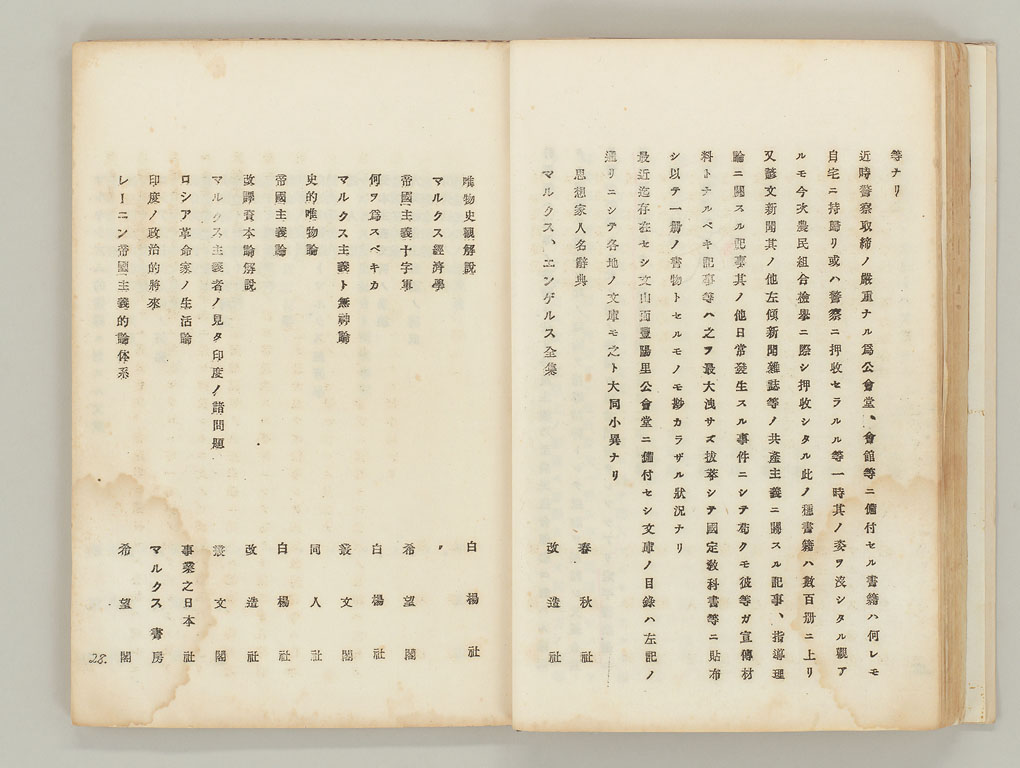 等ナリ
近時警察取締ノ嚴重ナル爲公會堂、會館等ニ備付セル書籍ハ何レモ
自宅ニ持歸リ或ハ警察ニ押收セラルル等一時其ノ姿ヲ沒シタル觀ア
ルモ今次農民組合檢擧ニ際シ押收シタル此ノ種書籍ハ數百册ニ上リ
又諺文新聞其ノ他左傾新聞雜誌等ノ共產主義ニ關スル記事、指導理
論ニ關スル記事其ノ他日常發生スル事件ニシテ苟クモ彼等ガ宣傳材
料トナルベキ記事等ハ之ヲ最大洩サズ拔萃シテ國定敎科書等ニ貼布
シ以テ一册ノ書物トセルモノモ尠カラザル狀況ナリ
最近迄存在セシ文山面豊陽里公會堂ニ備付セシ文庫ノ目錄ハ左記ノ
通リニシテ各地ノ文庫モ之ト大同小異ナリ
思想家人名辭典 春秋社
マルクス、エンゲルス全集 改造社
唯物史觀解說 白揚社
マルクス經濟學 〃
帝國主義十字軍 希望閣
何ヲ爲スベキカ 白揚社
マルクス主義ト無神論 叢文閣
史的唯物論 同人社
帝國主義論 白楊社
改譯資本論解說 改造社
マルクス主義者ノ見タ印度ノ諸問題 叢文閣
ロシア革命家ノ生活論 事業之日本社
印度ノ政治的將來 マルクス書房
レーニン帝國主義的論体系 希望閣
28.